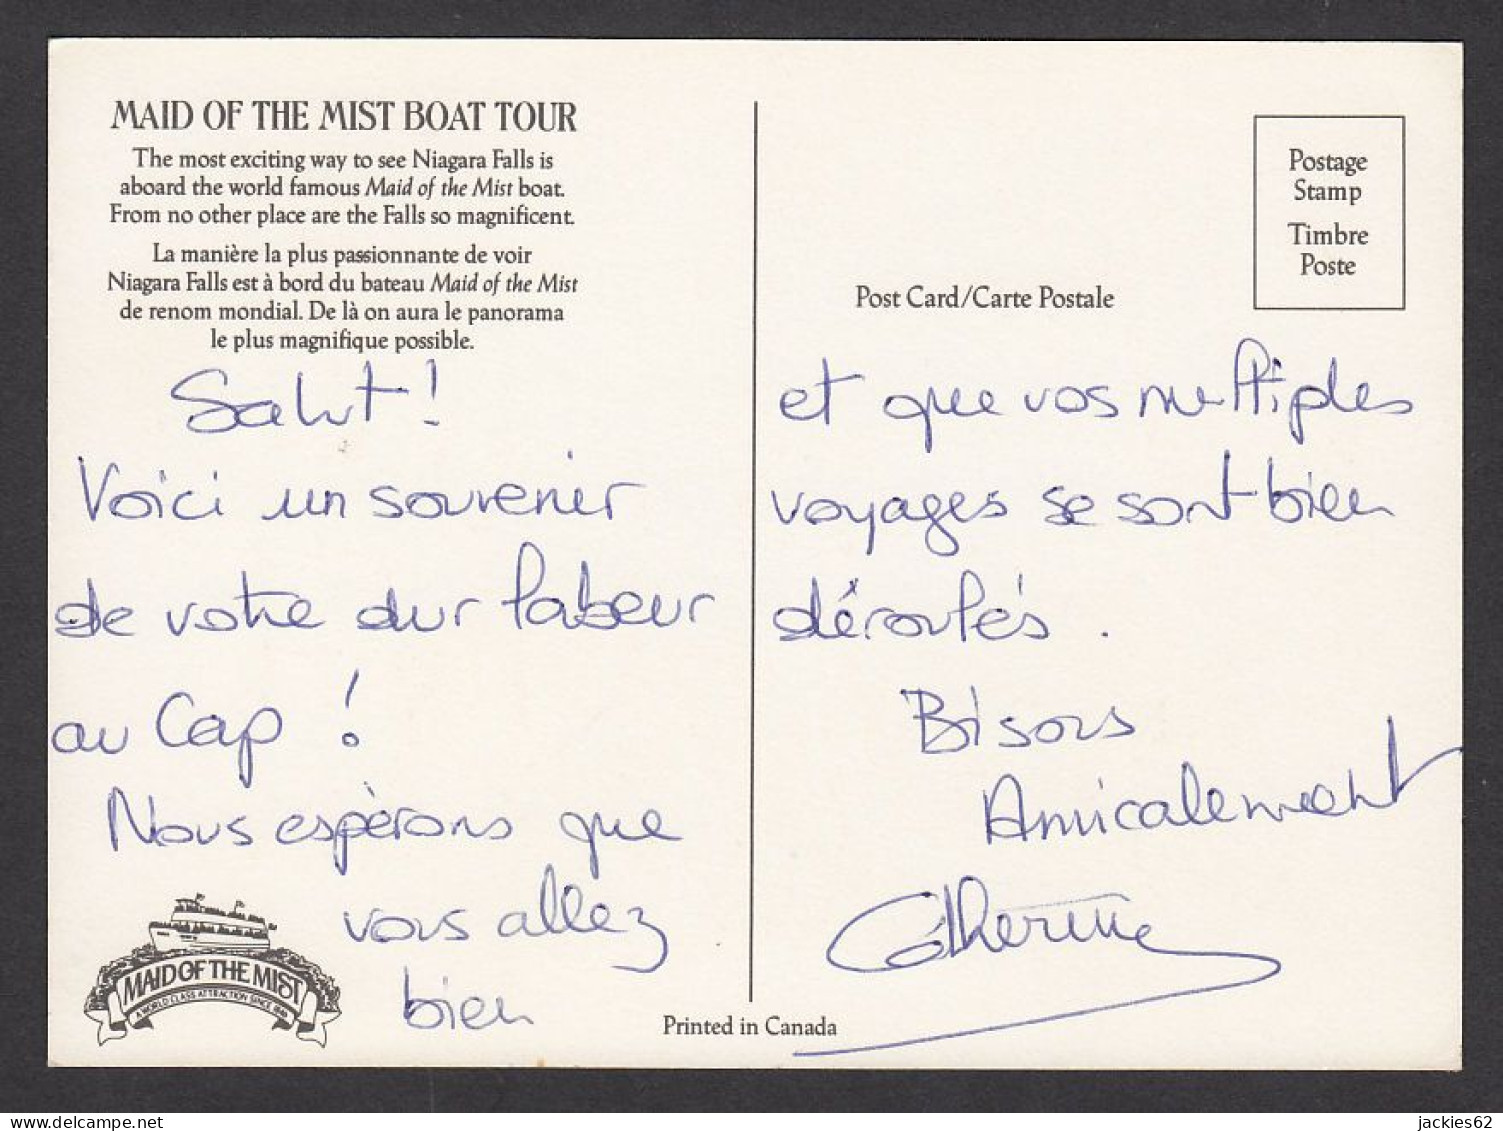 MAID OF THE MIST BOAT TOUR
The most exciting way to see Niagara Falls is
aboard the world famous Maid of the Mist boat.
From no other place are the Falls so magnificent.
La manière la plus passionnante de voir
Niagara Falls est à bord du bateau Maid of the Mist
de renom mondial. De là on aura le panorama
le plus magnifique possible.
Salut !
Voici un souvenir
de votre dur labeur
au Cap !
Nous espèrons que
vous allez
bien
MAID OF THE MIST
A WORLD CLASS ATTRACTION SINCE 1846
Printed in Canada
Postage
Stamp
Timbre
Poste
Post Card/Carte Postale
et que vos multiples
voyages se sont bien
déroulés.
Bisous
Amicalement
Catherine
jackies62